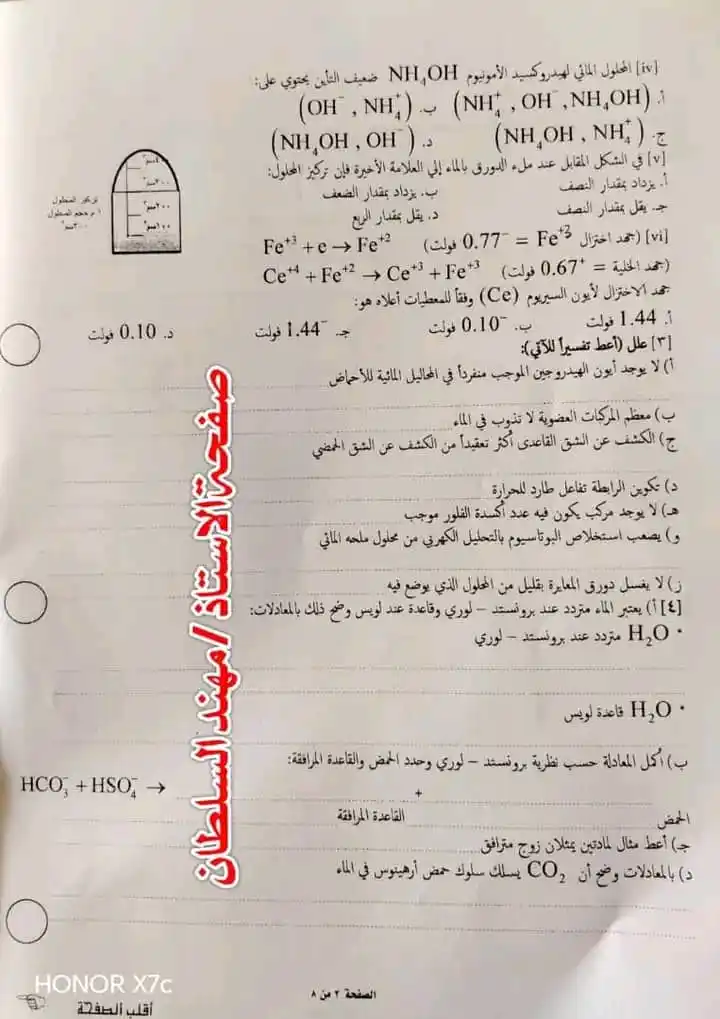 [iv] المحلول المائي لهيدروكسيد الأمونيوم NH₄OH ضعيف التأين يحتوي على:
أ. (NH₄⁺ , OH⁻ , NH₄OH) ب. (OH⁻ , NH₄⁺)
ج. (NH₄OH , NH₄⁺) د. (NH₄OH , OH⁻)
[v] في الشكل المقابل عند ملء الدورق بالماء إلي العلامة الأخيرة فإن تركيز المحلول:
أ. يزداد بمقدار النصف ب. يزداد بمقدار الضعف
جـ. يقل بمقدار النصف د. يقل بمقدار الربع
٣٠٠سم³
٢٠٠سم³
١٠٠سم³
تركيز المحلول
١ م حجم المحلول
٣٠٠سم³
[vi] (جهد اختزال Fe⁺³ = 0.77⁻ فولت) Fe⁺³ + e → Fe⁺²
(جهد الخلية = 0.67⁺ فولت) Ce⁺⁴ + Fe⁺² → Ce⁺³ + Fe⁺³
جهد الاختزال لأيون السيريوم (Ce) وفقاً للمعطيات أعلاه هو:
أ. 1.44 فولت ب. 0.10⁻ فولت جـ. 1.44⁻ فولت د. 0.10 فولت
[٣] علل (أعط تفسيراً للآتي):
أ) لا يوجد أيون الهيدروجين الموجب منفرداً في المحاليل المائية للأحماض
ب) معظم المركبات العضوية لا تذوب في الماء
ج) الكشف عن الشق القاعدى أكثر تعقيداً من الكشف عن الشق الحمضي
د) تكوين الرابطة تفاعل طارد للحرارة
هـ) لا يوجد مركب يكون فيه عدد أكسدة الفلور موجب
و) يصعب استخلاص البوتاسيوم بالتحليل الكهربي من محلول ملحه المائي
ز) لا يغسل دورق المعايرة بقليل من المحلول الذي يوضع فيه
[٤] أ) يعتبر الماء متردد عند برونستد – لوري وقاعدة عند لويس وضح ذلك بالمعادلات:
• H₂O متردد عند برونستد – لوري
• H₂O قاعدة لويس
ب) أكمل المعادلة حسب نظرية برونستد – لوري وحدد الحمض والقاعدة المرافقة:
HCO₃⁻ + HSO₄⁻ → +
الحمض القاعدة المرافقة
جـ) أعط مثال لمادتين يمثلان زوج مترافق
د) بالمعادلات وضح أن CO₂ يسلك سلوك حمض أرهينوس في الماء
صفحة الاستاذ / مهند السلطان
HONOR X7c
الصفحة ٢ من ٨
أقلب الصفحة